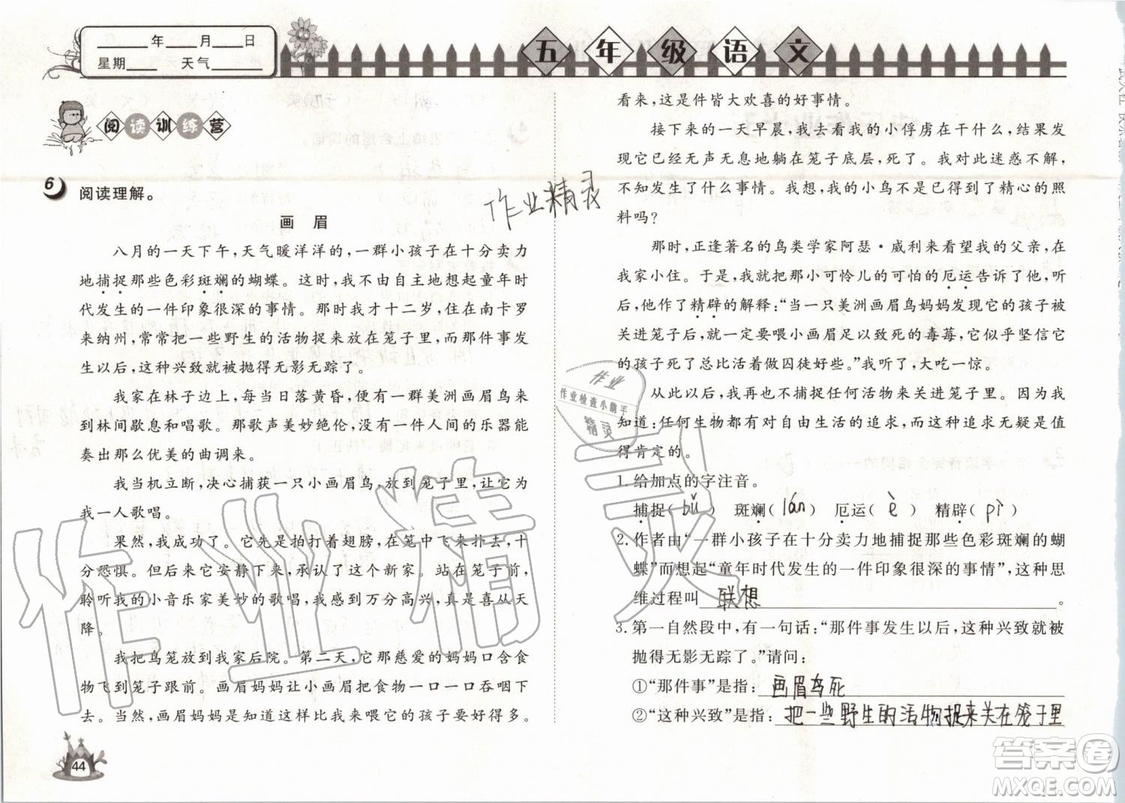 ____年____月____日
星期____ 天气____
五年级语文
阅读训练营
6 阅读理解。
画 眉
八月的一天下午,天气暖洋洋的,一群小孩子在十分卖力
地捕捉那些色彩斑斓的蝴蝶。这时,我不由自主地想起童年时
代发生的一件印象很深的事情。那时我才十二岁,住在南卡罗
来纳州,常常把一些野生的活物捉来放在笼子里,而那件事发
生以后,这种兴致就被抛得无影无踪了。
我家在林子边上,每当日落黄昏,便有一群美洲画眉鸟来
到林间歇息和唱歌。那歌声美妙绝伦,没有一件人间的乐器能
奏出那么优美的曲调来。
我当机立断,决心捕获一只小画眉,放到我的笼子里,让它为
我一人歌唱。
果然,我成功了。它先是拍打着翅膀,在笼中飞来扑去,十
分恐惧。但后来它安静下来,承认了这个新家。站在笼子前,
聆听我的小音乐家美妙的歌唱,我感到万分高兴,真是喜从天
降。
我把鸟笼放到我家后院。第二天,它那慈爱的妈妈口含食
物飞到笼子跟前。画眉妈妈让小画眉把食物一口一口吞咽下
去。当然,画眉妈妈是知道这样比我来喂它的孩子要好得多。
44
看来,这是件皆大欢喜的好事情。
接下来的一天早晨,我去看我的小俘虏在干什么,结果发
现它已经无声无息地躺在笼子底层,死了。我对此迷惑不解,
不知发生了什么事情。我想,我的小鸟不是已得到了精心的照
料吗?
那时,正逢著名的鸟类学家阿瑟·威利来看望我的父亲,在
我家小住。于是,我就把那小可怜儿的可怕的厄运告诉了他,听
后,他作了精辟的解释:“当一只美洲画眉鸟妈妈发现它的孩子被
关进笼子后,就一定要喂小画眉足以致死的毒莓,它似乎坚信它
的孩子死了总比活着做囚徒好些。”我听后,大吃一惊。
从此以后,我再也不捕捉任何活物来关进笼子里。因为我
知道:任何生物都有对自由生活的追求,而这种追求无疑是值
得肯定的。
1. 给加点的字注音。
捕捉(bǔ) 斑斓(lán) 厄运(è) 精辟(pì)
2. 作者由“一群小孩子在十分卖力地捕捉那些色彩斑斓的蝴
蝶”而想起“童年时代发生的一件印象很深的事情”,这种思
维过程叫 联想 。
3. 第一自然段中,有一句话:“那件事发生以后,这种兴致就被
抛得无影无踪了。”请问:
①“那件事”是指: 画眉鸟死
②“这种兴致”是指: 把一些野生的活物捉来关在笼子里
作业精灵
作业
作业检查小助手
精灵
作业精灵
答案圈
MXQE.COM